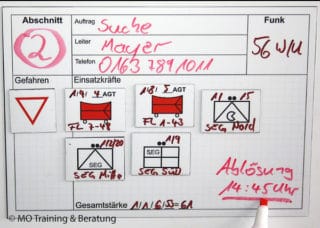 Abschnitt
2
Auftrag Suche
Leiter Mayer
Telefon 0163 7891011
Funk
56 W/U
Gefahren
Einsatzkräfte
AGT
AGT
FL 7-48
FL 1-43
SEG Nord
SEG
SEG Mitte
SEG
SEG Süd
Ablösung
14:45 Uhr
Gesamtstärke
© MO Training & Beratung